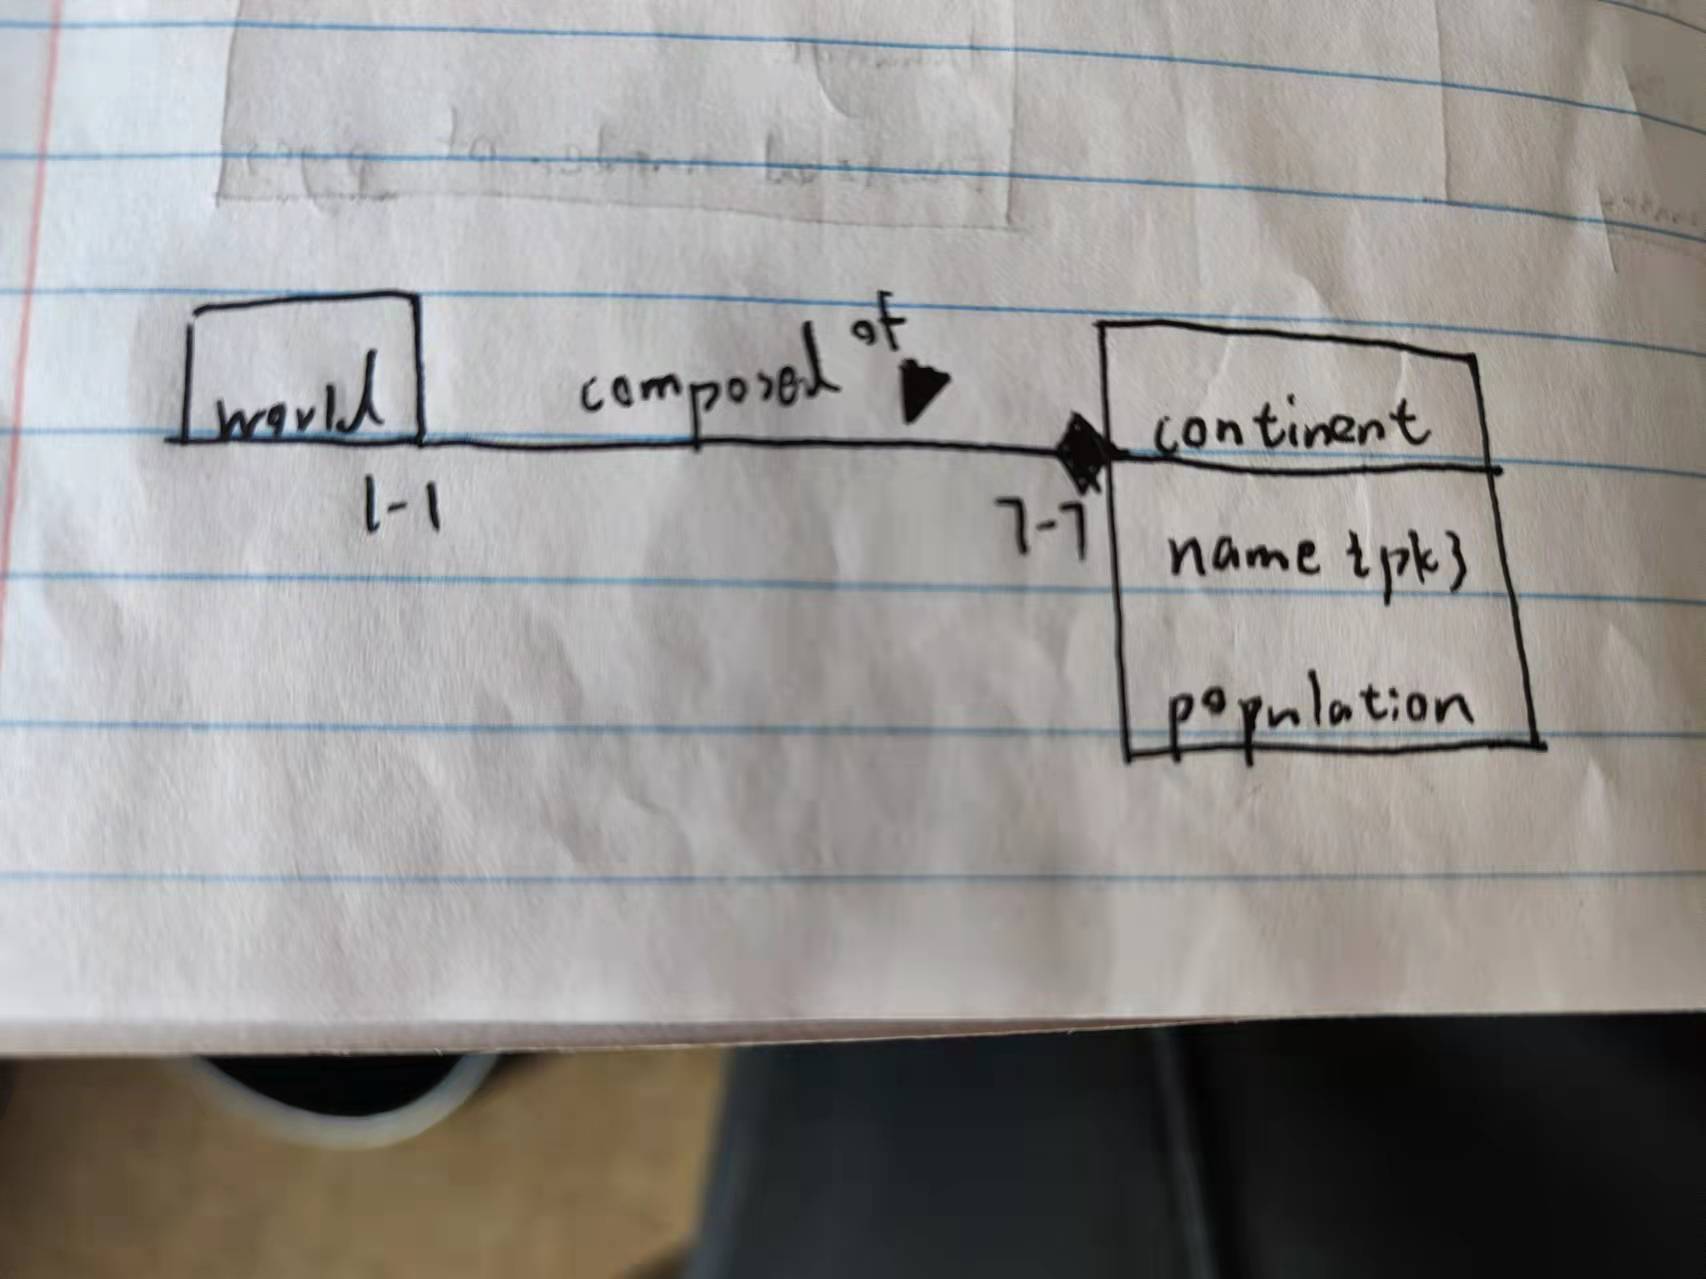 world
composed of
1-1
7-7
continent
name {pk}
population